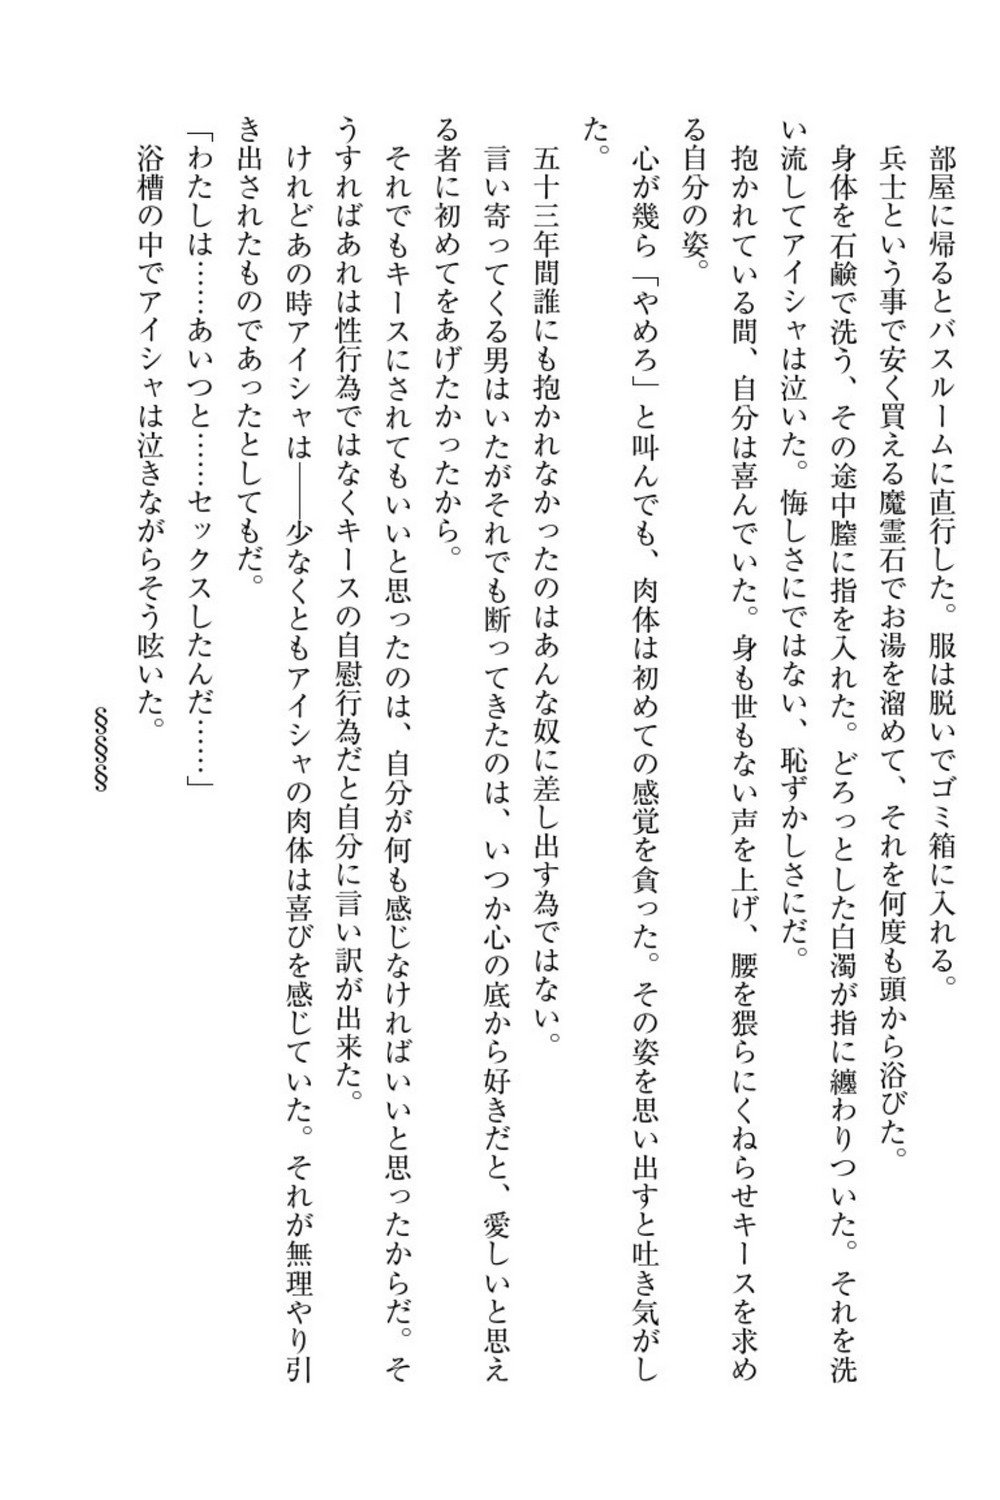 部屋に帰るとバスルームに直行した。服は脱いでゴミ箱に入れる。
兵士という事で安く買える魔霊石でお湯を溜めて、それを何度も頭から浴びた。
身体を石鹸で洗う、その途中膣に指を入れた。どろっとした白濁が指に纏わりついた。それを洗
い流してアイシャは泣いた。悔しさにではない、恥ずかしさにだ。
抱かれている間、自分は喜んでいた。身も世もない声を上げ、腰を猥らにくねらせキースを求め
る自分の姿。
心が幾ら「やめろ」と叫んでも、肉体は初めての感覚を貪った。その姿を思い出すと吐き気がし
た。
五十三年間誰にも抱かれなかったのはあんな奴に差し出す為ではない。
言い寄ってくる男はいたがそれでも断ってきたのは、いつか心の底から好きだと、愛しいと思え
る者に初めてをあげたかったから。
それでもキースにされてもいいと思ったのは、自分が何も感じなければいいと思ったからだ。そ
うすればあれは性行為ではなくキースの自慰行為だと自分に言い訳が出来た。
けれどあの時アイシャは――少なくともアイシャの肉体は喜びを感じていた。それが無理やり引
き出されたものであったとしてもだ。
「わたしは……あいつと……セックスしたんだ……」
浴槽の中でアイシャは泣きながらそう呟いた。
§§§§